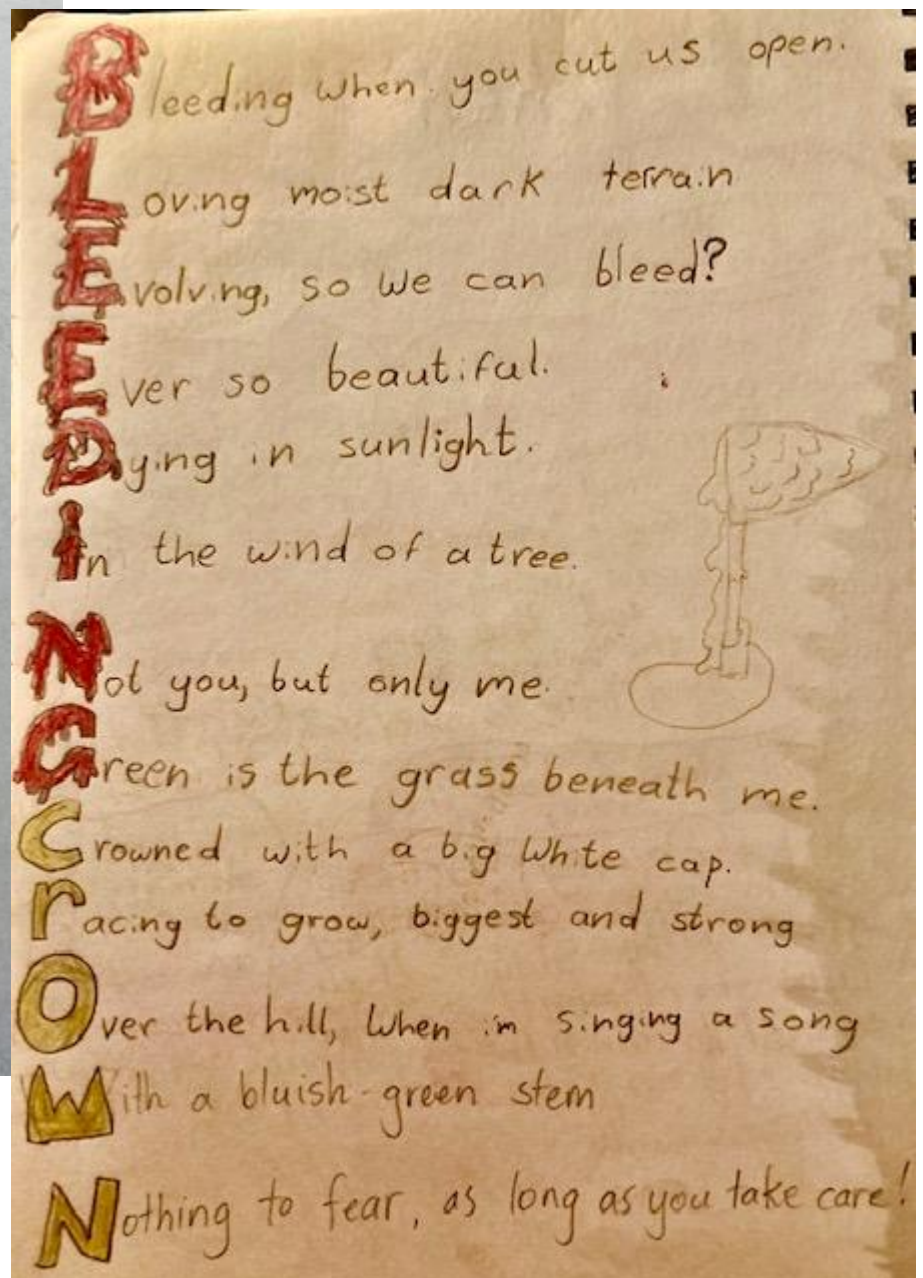 Bleeding when you cut us open.
Loving moist dark terrain
Evolving, so we can bleed?
Ever so beautiful.
Dying in sunlight.
In the wind of a tree.
Not you, but only me.
Green is the grass beneath me.
Crowned with a big white cap.
racing to grow, biggest and strong
Over the hill, when im singing a song
With a bluish-green stem
Nothing to fear, as long as you take care!